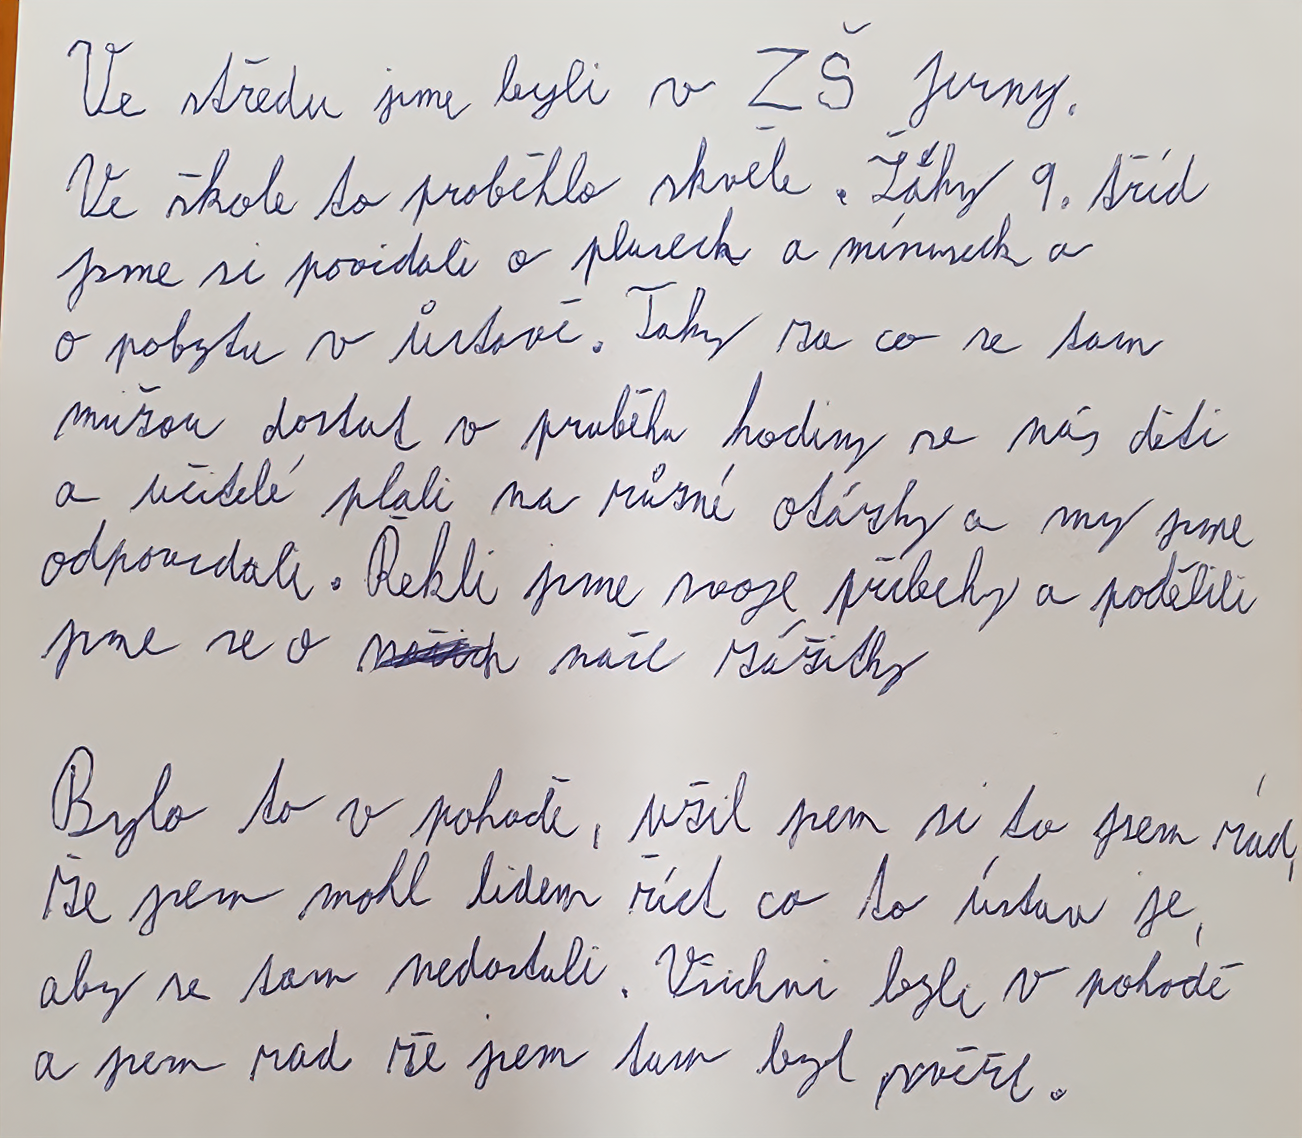 Ve středu jsme byli v ZŠ Jirny.
Ve škole to proběhlo skvěle. Žáky 9. tříd
jsme si povidali o plusech a mínusech a
o pobytu v ůstavě. Taky za co se tam
mužou dostat v pruběhu hodiny se nás děti
a učitelé ptali na různé otázky a my jsme
odpovidali. Řekli jsme svoje přiběhy a podělili
jsme se o naše zážitky
Bylo to v pohodě, užil jsem si to jsem rád,
že jsem mohl lidem říct co to ústav je,
aby se tam nedostali. Všichni byli v pohodě
a jsem rad že jsem tam byl